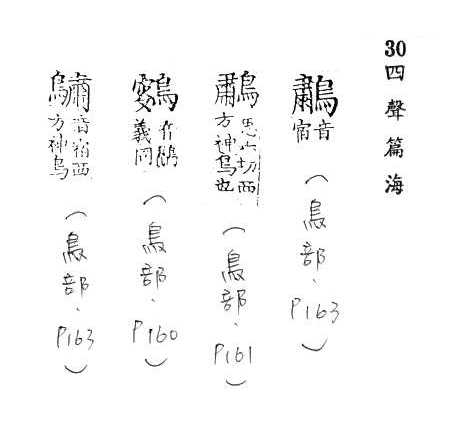 30四聲篇海
音宿（鳥部、P163）
鷫思六切西方神鳥也（鳥部、P161）
義同（鳥部、P160）
音宿西方神鳥（鳥部、P163）